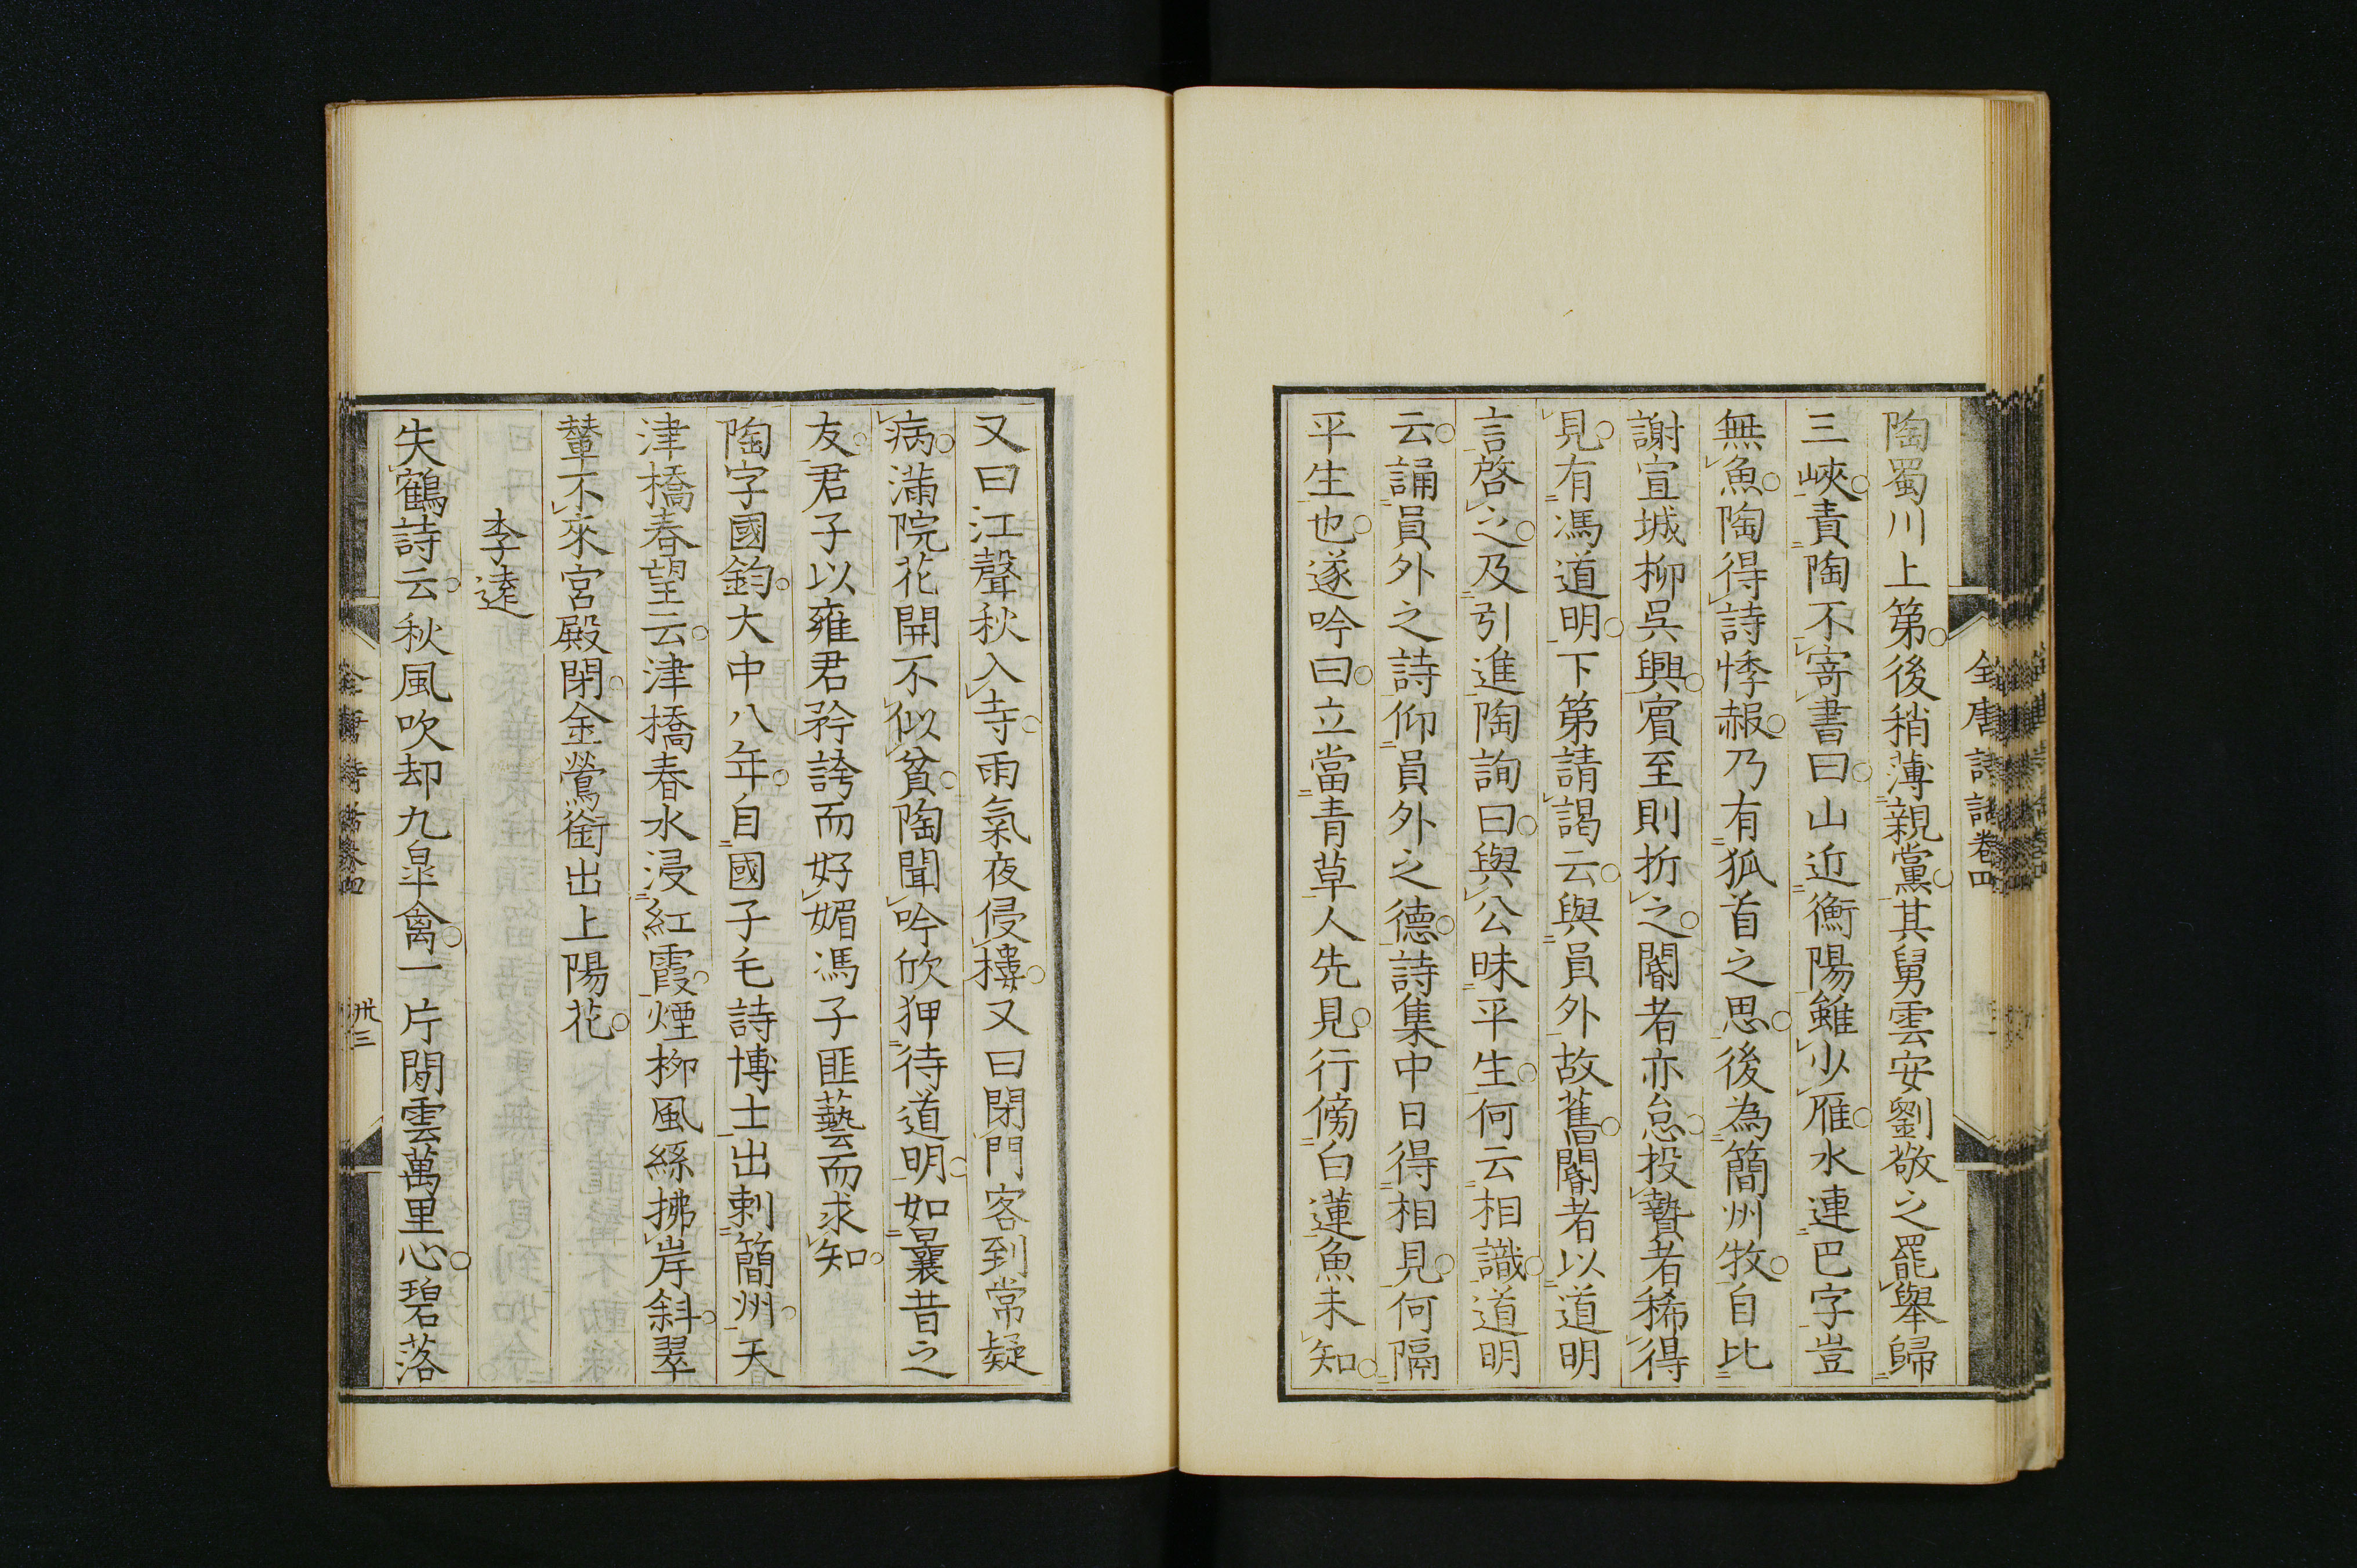 陶蜀川上第後稍薄親黨其舅雲安劉敬之罷舉歸
三峽責陶不寄書曰山近衡陽雖少雁水連巴字豈
無魚陶得詩悸赧乃有狐首之思後為簡州牧自比
謝宣城柳吳興賓至則折之閽者亦怠投贄者稀得
見有馮道明下第請謁云與員外故舊閽者以道明
言啓之及引進陶詢曰與公昧平生何云相識道明
云誦員外之詩仰員外之德詩集中日得相見何隔
平生也遂吟曰立當青草人先見行傍白蓮魚未知
又曰江聲秋入寺雨氣夜侵樓又曰閉門客到常疑
病滿院花開不似貧陶聞吟欣狎待道明如曩昔之
友君子以雍君矜誇而好媚馮子匪藝而求知
陶字國鈞大中八年自國子毛詩博士出刺簡州天
津橋春望云津橋春水浸紅霞煙柳風絲拂岸斜翠
輦不來宮殿閉金鶯銜出上陽花
李遠
失鶴詩云秋風吹却九皐禽一片閒雲萬里心碧落
全唐詩話卷四
卅三